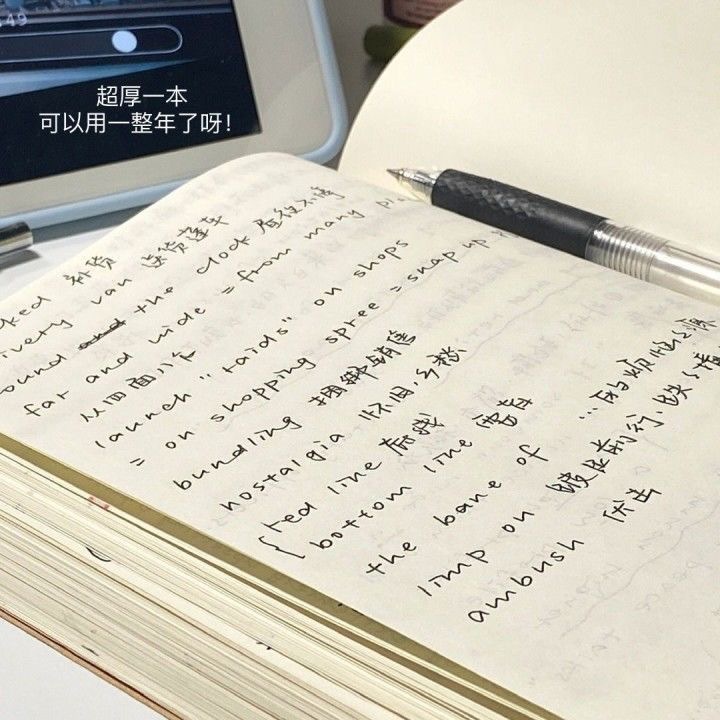 49
超厚一本
可以用一整年了呀！
ked 补货
ivery van 送货篷车
ound the clock 昼夜不停
far and wide = from many pl
从四面八方
launch "raids" on shops
= on shopping spree = snap-up
bundling 捆绑销售
nostalgia 怀旧,乡愁
red line 赤线
bottom line 底线
the bane of ...的烦恼之源
limp on 跛足前行.
ambush 伏击